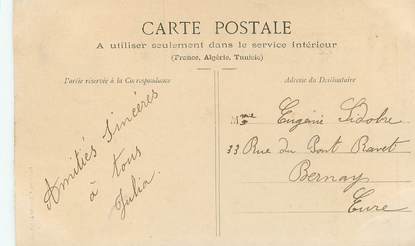 CARTE POSTALE
A utiliser seulement dans le service intérieur
(France, Algérie, Tunisie)
Partie réservée à la Correspondance
Adresse du Destinataire
Amitiés sincères
à tous
Julia.
Mme Eugénie Lidobre
33 Rue du Pont Ravet
Bernay
Eure